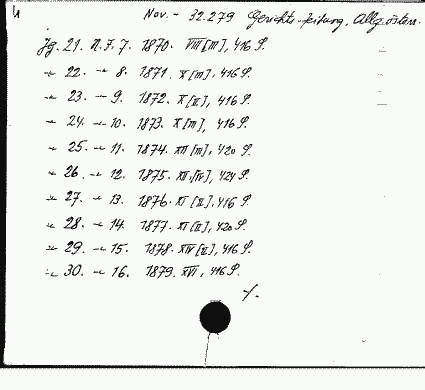 4
Nov. - 32.279 Gerichts-Zeitung, Allg. österr.
Jg. 21. N.F. 7. 1870. VIII [III], 416 S.
-"- 22. -"- 8. 1871. X [III], 416 S.
-"- 23. -"- 9. 1872. X [II], 416 S.
-"- 24. -"- 10. 1873. X [III], 416 S.
-"- 25. -"- 11. 1874. XII [III], 420 S.
-"- 26. -"- 12. 1875. XII, [IV], 424 S.
-"- 27. -"- 13. 1876. XI [II], 416 S.
-"- 28. -"- 14. 1877. XI [II], 420 S.
-"- 29. -"- 15. 1878. XIV [II], 416 S.
-"- 30. -"- 16. 1879. XVI, 416 S.
./.